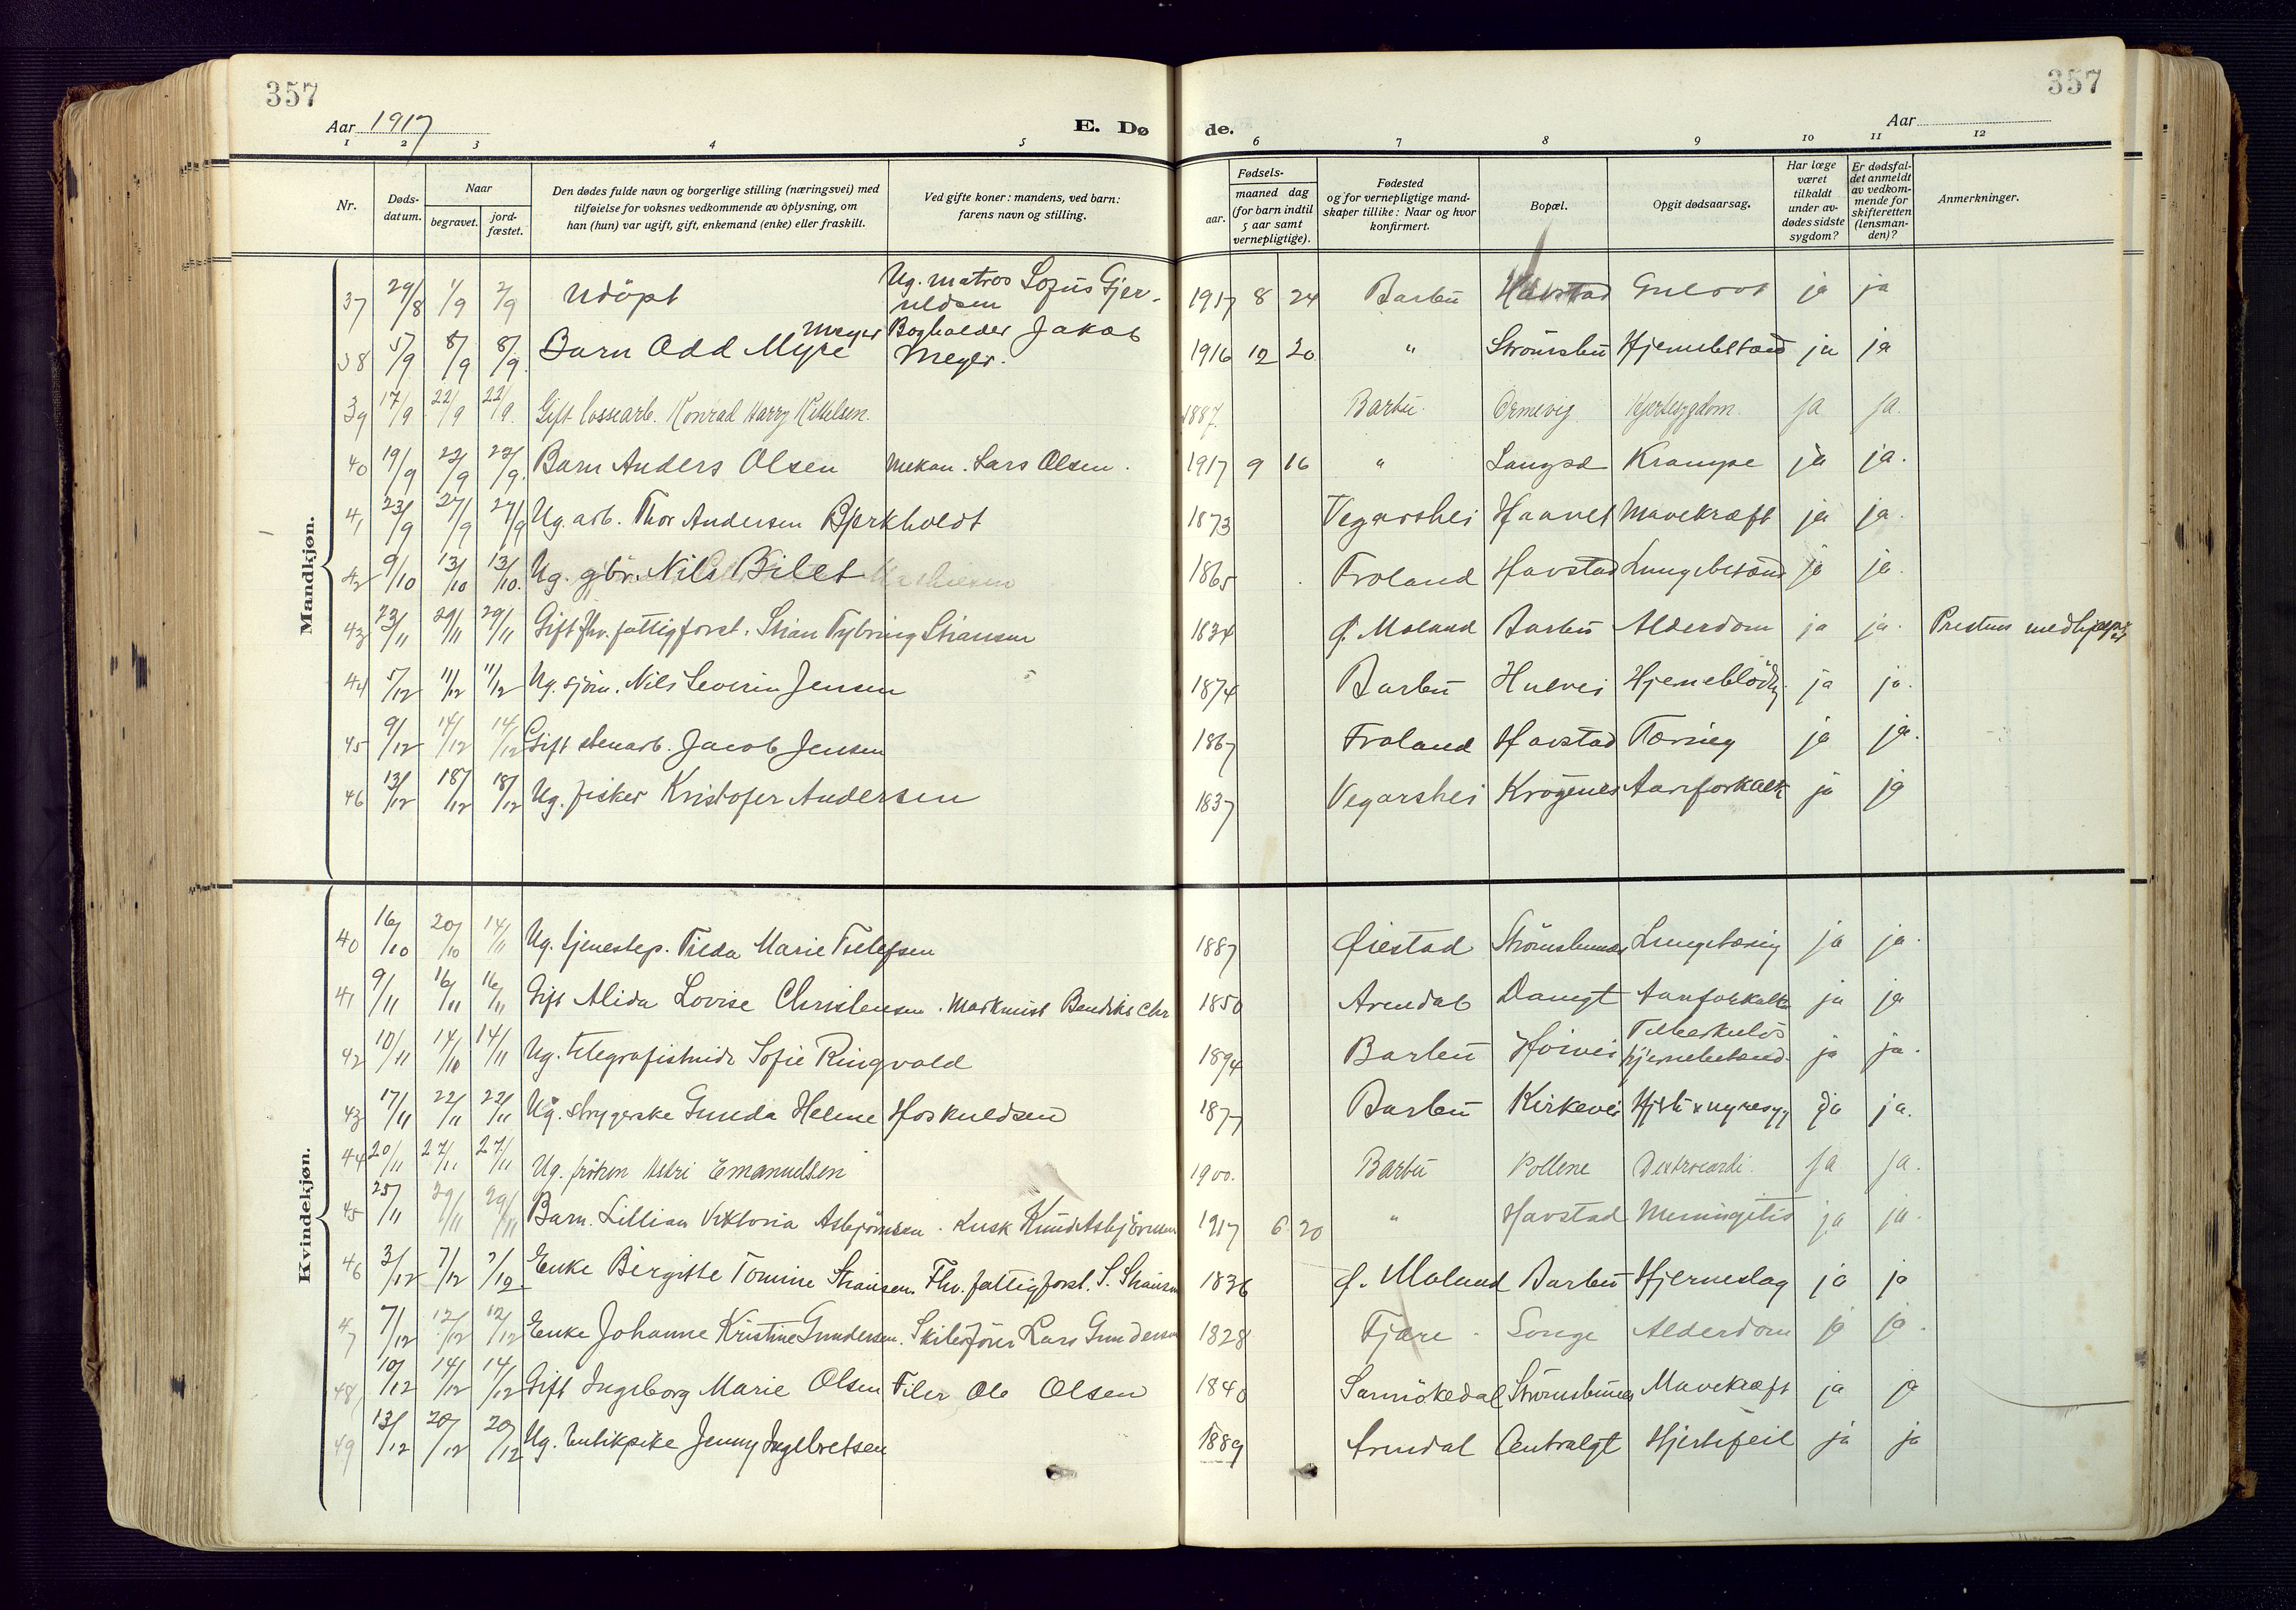 357
357
Aar 1917
E. Dø
de.
Aar
1 2 3 4 5 6 7 8 9 10 11 12
Nr.
Døds-datum.
Naar
begravet.
jord-fæstet.
Den dødes fulde navn og borgerlige stilling (næringsvei) med
tilføielse for voksnes vedkommende av oplysning, om
han (hun) var ugift, gift, enkemand (enke) eller fraskilt.
Ved gifte koner: mandens, ved barn:
farens navn og stilling.
Fødsels-
aar.
maaned dag
(for barn indtil
5 aar samt
vernepligtige).
Fødested
og for vernepligtige mand-
skaper tillike: Naar og hvor
konfirmert.
Bopæl.
Opgit dødsaarsag.
Har læge
været
tilkaldt
under av-
dødes sidste
sygdom?
Er dødsfal-
det anmeldt
av vedkom-
mende for
skifteretten
(lensman-
den)?
Anmerkninger.
Mandkjøn.
37 29/8 1/9 2/9 Udöpt Ug. matros Sofus Gjeruldsen 1917 8 24 Barbu Havstad Gulsot ja ja
38 5/9 8/9 8/9 Barn Odd Myre Meyer Bogholder Jakob Meyer. 1916 12 20 " Strömsbu Hjernebetænd ja ja
39 17/9 22/9 22/9. Gift lossearb. Konrad Harry Kittelsen. 1887. Barbu. Ormevig Hjertesygdom. ja ja.
40 19/9 22/9 22/9. Barn Anders Olsen Mekan. Lars Olsen. 1917 9 16 " Langsæ Krampe ja ja.
41 23/9 27/9 27/9 Ug. arb. Thor Andersen Bjørkholdt 1873 Vegarshei Haavet Mavekræft ja ja.
42 9/10 13/10 13/10. Ug. gbr. Nils Bilet 1865 Froland Havstad Lungebetænd ja ja.
43 23/11 29/11 29/11 Gift fhv. fattigforst. Stian Tybring Stiansen 1834 Ø. Moland Barbu Alderdom ja ja. Prestens medhjælper
44 5/12 11/12 11/12 Ug. sjöm. Nils Severin Jensen 1874 Barbu Hulvei Hjerneblödn. ja ja.
45 9/12 14/12 14/12 Gift stenarb. Jacob Jensen 1867 Froland Havstad Tæring ja ja.
46 13/12 18/12 18/12 Ug. fisker Kristofer Andersen 1837 Vegarshei Krögenes Aareforkalk ja ja
Kvindekjøn.
40 16/10 20/10 14/11 Ug. tjenestep. Tilda Marie Tellefsen 1887 Øiestad Strömsbunes Lungetæring ja ja.
41 9/11 16/11 16/11 Gift Alida Lovise Christensen. Maskinist Bendiks Chr 1850 Arendal Damgt Aareforkalkn ja ja
42 10/11 14/10 14/11 Ug. telegrafistinde Sofie Ringvold 1894 Barbu Höivei Tuberkulös hjernebetænd. ja ja.
43 17/11 22/11 22/11 Ug. strygerske Gunda Helene Hoskuldsen 1877 Barbu Kirkevei Hjerte & nyresyg ja ja.
44 20/11 27/11 27/11 Ug. fröken Astri Emanuelsen 1900. Barbu Pollene Dextrocardi. ja ja.
45 25/11 29/11 29/11 Barn. Lillian Viktoria Asbjörnsen. Kusk Knud Asbjörnsen 1917 6 20 " Havstad Meningitis ja ja.
46 3/12 7/12 7/12 Enke Birgitte Tomine Stiansen. Fhv. fattigforst. S. Stiansen 1836 Ø. Moland Barbu Hjerneslag ja ja
47 7/12 12/12 12/12 Enke Johanne Kristine Gundersen. Skibsförer Lars Gundersen 1828 Fjære. Songe Alderdom ja ja.
48 10/12 14/12 14/12 Gift Ingeborg Marie Olsen Filer Ole Olsen 1840 Sannökedal Strömsbunes Mavekræft ja ja
49 13/12 20/12 20/12 Ug. butikpike Jenny Ingebretsen 1889 Arendal Centralgt Hjertefeil ja ja